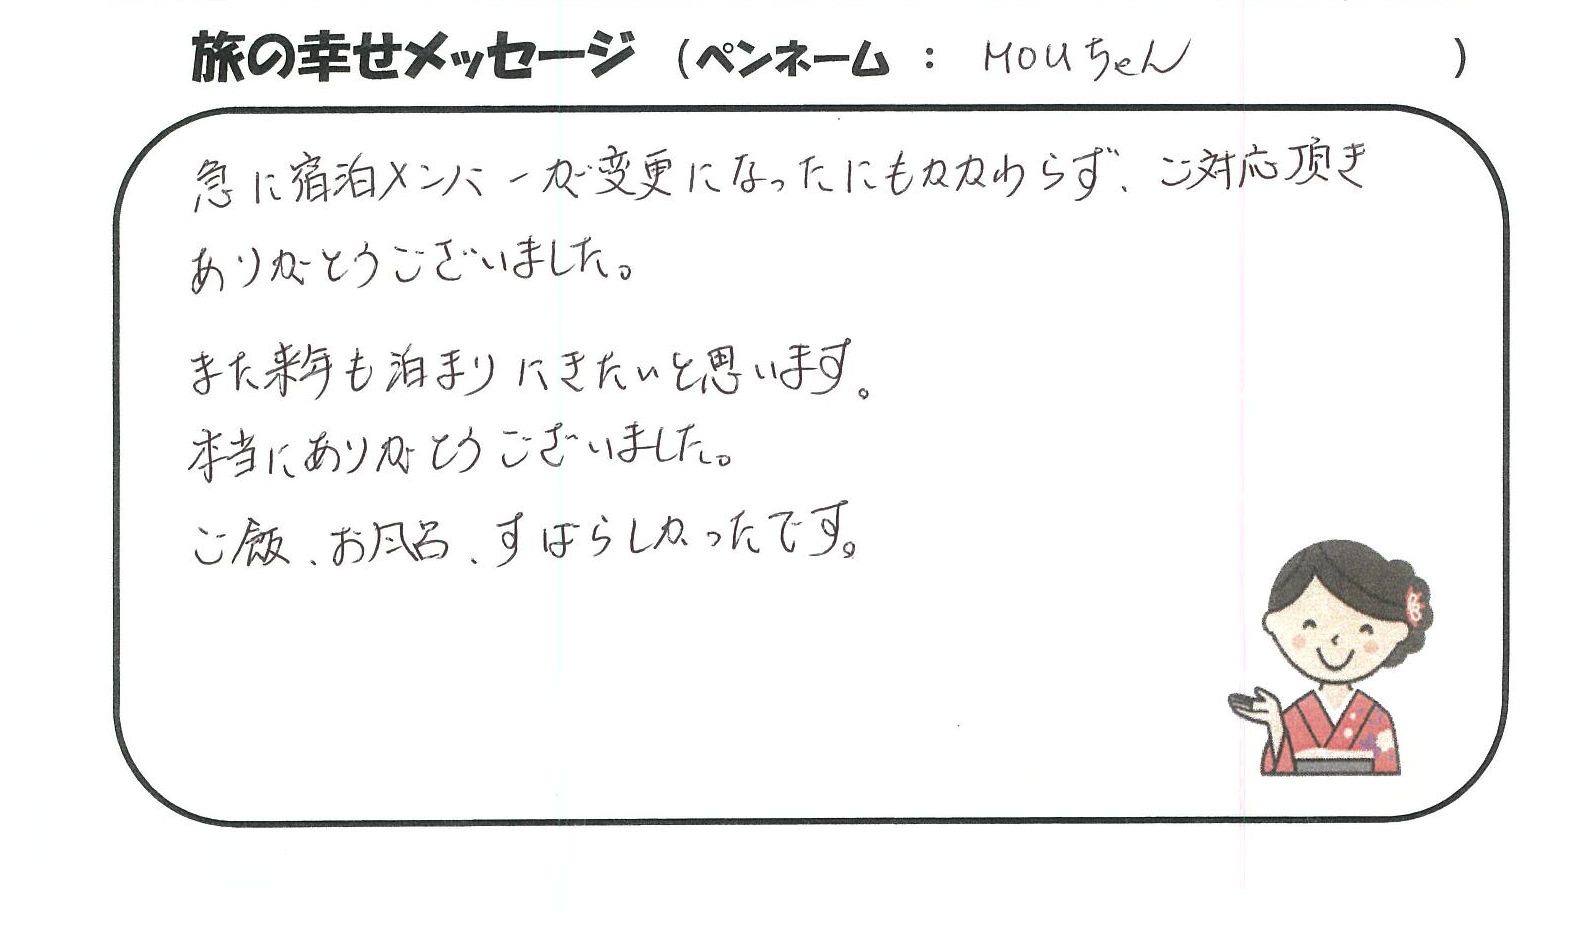 旅の幸せメッセージ (ペンネーム : MOUちゃん )
急に宿泊メンバーが変更になったにもかかわらず、ご対応頂き
ありがとうございました。
また来年も泊まりにきたいと思います。
本当にありがとうございました。
ご飯、お風呂、すばらしかったです。